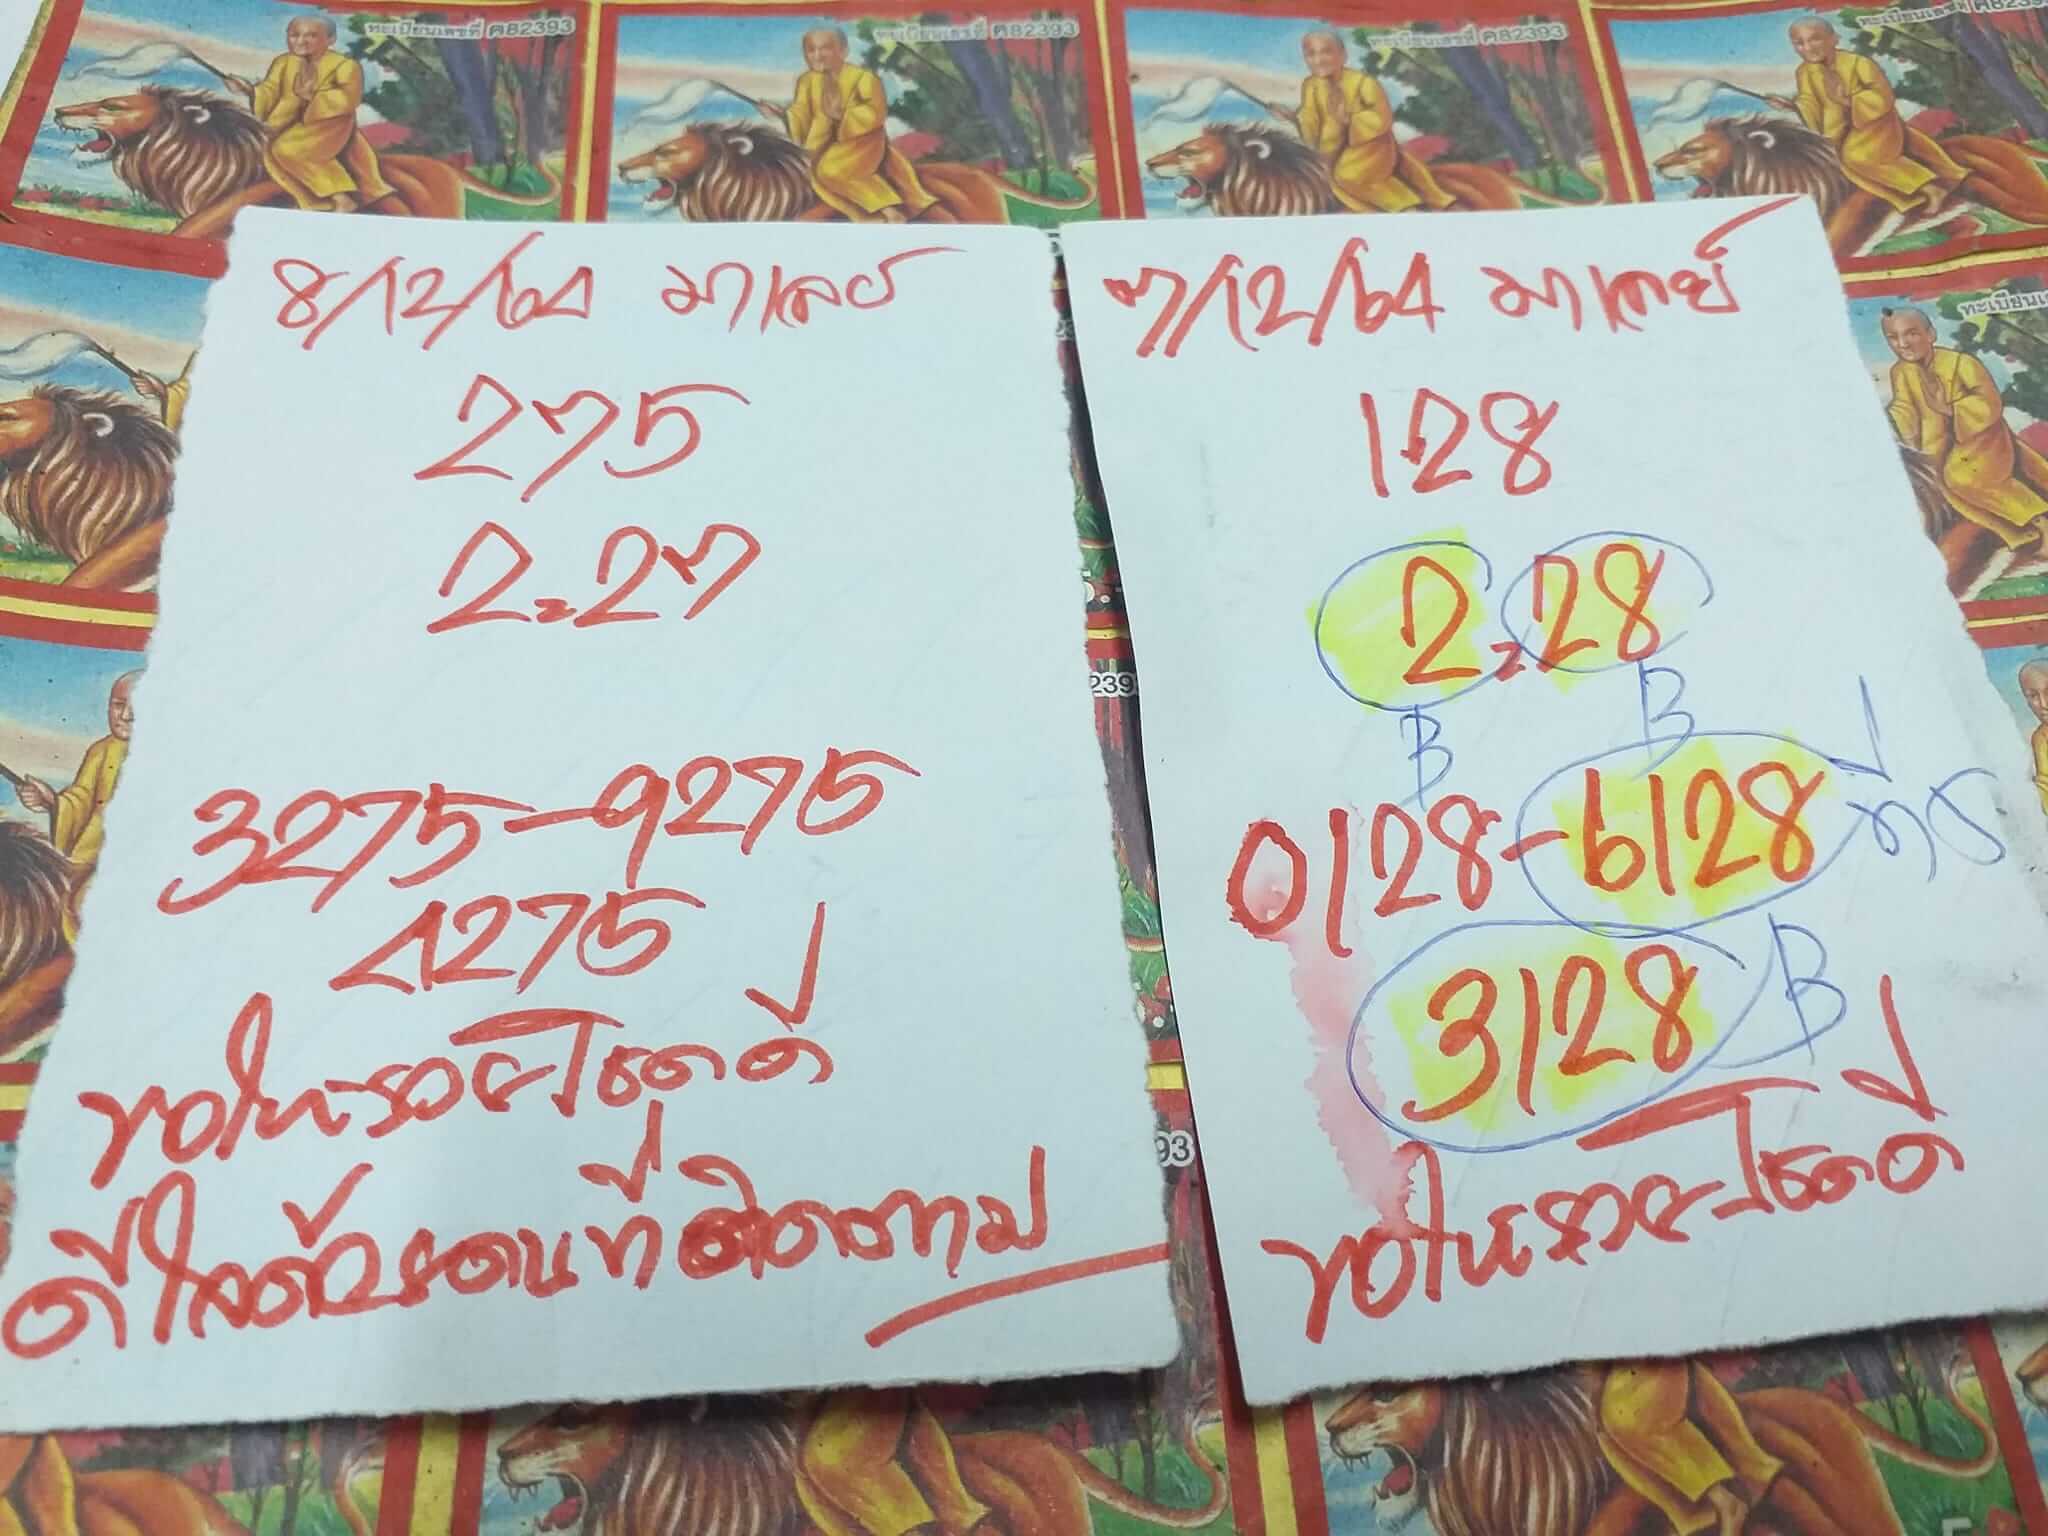 ทะเบียนเลขที่ ค82393
ทะเบียนเลขที่ ค82393
ทะเบียนเลขที่ ค82393
ทะเบียนเลขที่ ค82393
8/12/64 มาเลย์
275
2=27
3275-9275
4275
ขอให้รวยโชคดี
ดีใจด้วยคนที่ติดตาม
7/12/64 มาเลย์
128
2=28
B B
0128-6128
3128 B
ขอให้รวยโชคดี